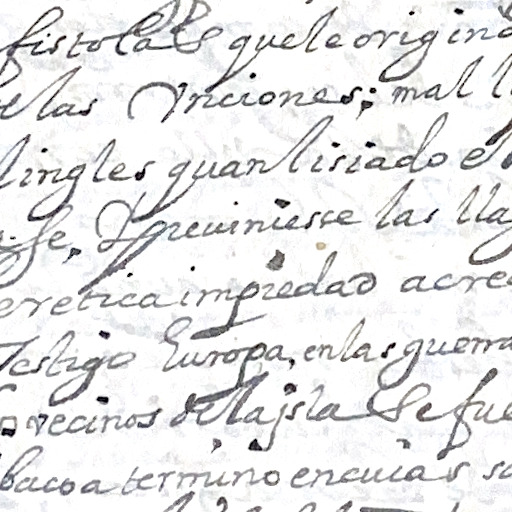 fistolas que le origina
de las Vnciones; mal ll
lingles quan lisiado e
se, Y previniesse las llag
eretica impiedad acred
Testigo Europa, en las guerra
vecinos de la jsla Se fue
baco a termino en cuias sa